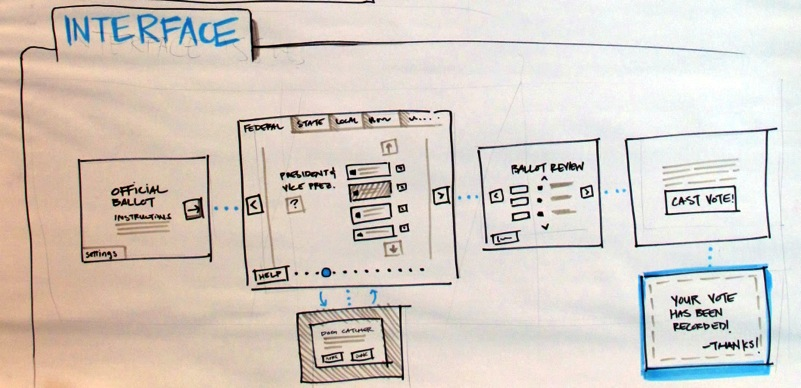 INTERFACE
OFFICIAL
BALLOT
INSTRUCTIONS
settings
FEDERAL STATE LOCAL
PRESIDENT &
VICE PRES.
?
HELP
BALLOT REVIEW
CAST VOTE!
YOUR VOTE
HAS BEEN
RECORDED!
-THANKS!